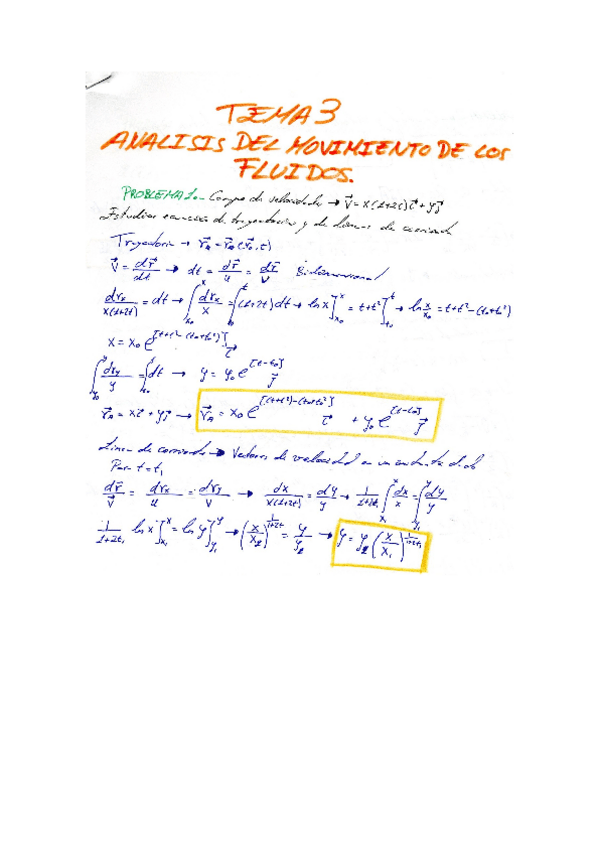 TEMA 3
ANALISIS DEL MOVIMIENTO DE LOS
FLUIDOS.
PROBLEMA 1.- Campo de velocidades → V⃗ = x(1+2t) i⃗ + y j⃗
Estudiar ecuación de trayectorias y de líneas de corriente
Trayectoria → r⃗ₐ = r⃗ₐ(x⃗₀, t)
V⃗ = dr⃗/dt → dt = dr⃗/u = dr⃗/v Bidimensional
drx/x(1+2t) = dt → ∫_{x₀}^{x} drx/x = ∫_{t₀}^{t} (1+2t)dt → ln x]_{x₀}^{x} = t+t²]_{t₀}^{t} → ln x/x₀ = t+t²-(t₀+t₀²)
x = x₀ e^{[t+t²-(t₀+t₀²)]} i⃗
∫_{y₀}^{y} dry/y = ∫_{t₀}^{t} dt → y = y₀ e^{[t-t₀]} j⃗
r⃗ₐ = x i⃗ + y j⃗ → r⃗ₐ = x₀ e^{[(t+t²)-(t₀+t₀²]} i⃗ + y₀ e^{[t-t₀]} j⃗
Línea de corriente → Valores de velocidad en un instante dado
Para t = t₁
dr⃗/v⃗ = drx/u = dry/v → dx/x(1+2t) = dy/y → 1/1+2t₁ ∫_{x₁}^{x} dx/x = ∫_{y₁}^{y} dy/y
1/1+2t₁ ln x]_{x₁}^{x} = ln y]_{y₁}^{y} → (x/x₁)^{1/1+2t} = y/y₁ → y = y₁ (x/x₁)^{1/1+2t₁}